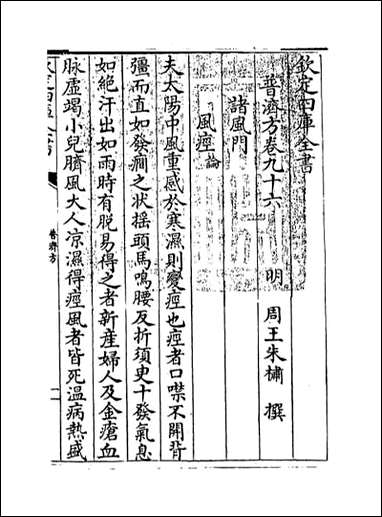 欽定四庫全書
普濟方卷九十六
明 周王朱橚 撰
諸風門
風痙論
夫太陽中風重感於寒濕則變痙也痙者口噤不開背
彊而直如發癎之状揺頭馬鳴腰反折須臾十發氣息
如絶汗出如雨時有脱易得之者新産婦人及金瘡血
脉虚竭小兒臍風大人凉濕得痙風者皆死温病熱盛
普濟方
一